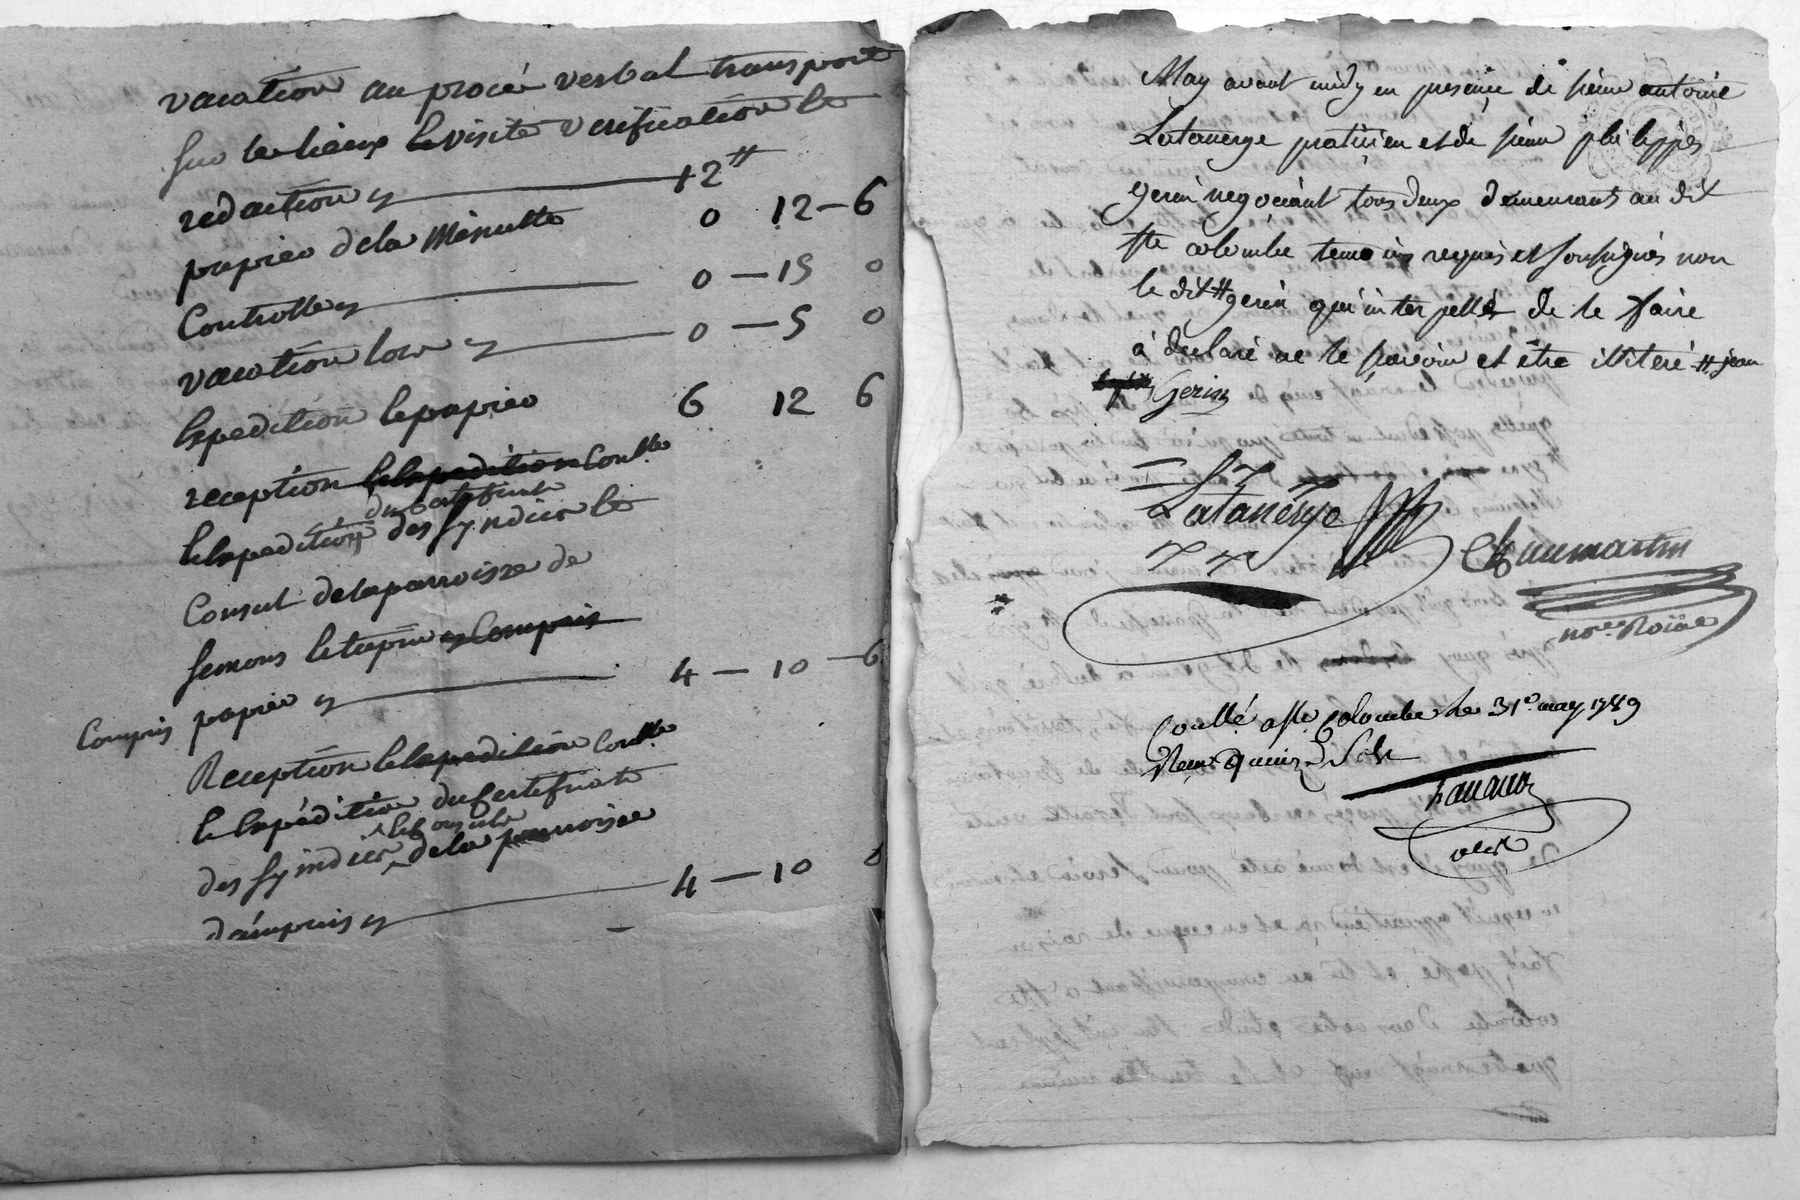 vacation au procès verbal transport
sur les lieux le visite verification le
redaction 12#
papier de la Minutte 0 12 - 6
Controlle 0 - 15 0
vacation 0 - 5 0
Expedition le papier 6 12 6
reception le lexpedition Contlle
du certificat
le lexpedition des syndics le
Consul de la parroisse de
Semons le tapin compris
Compris papier 4 - 10 - 6
Reception le lexpedition Contlle
le lexpédition du Certificat
le consuls
des syndics de la parroisse
dampuis 4 - 10 0
May avant midy en presence de sieur antoine
Latanerge praticien et de sieur philippes
gerin negociant tous deux demeurants au dit
Ste colombe temoins requis et soussignés non
le dit # gerin qui interpellé de le faire
a declaré ne le savoir et être illiteré # jean
Gerin
Latanerge
Chaumartin
nore. Roial
Contlé a Ste. Colombe le 31e. may 1789
Reçu quinze Sols